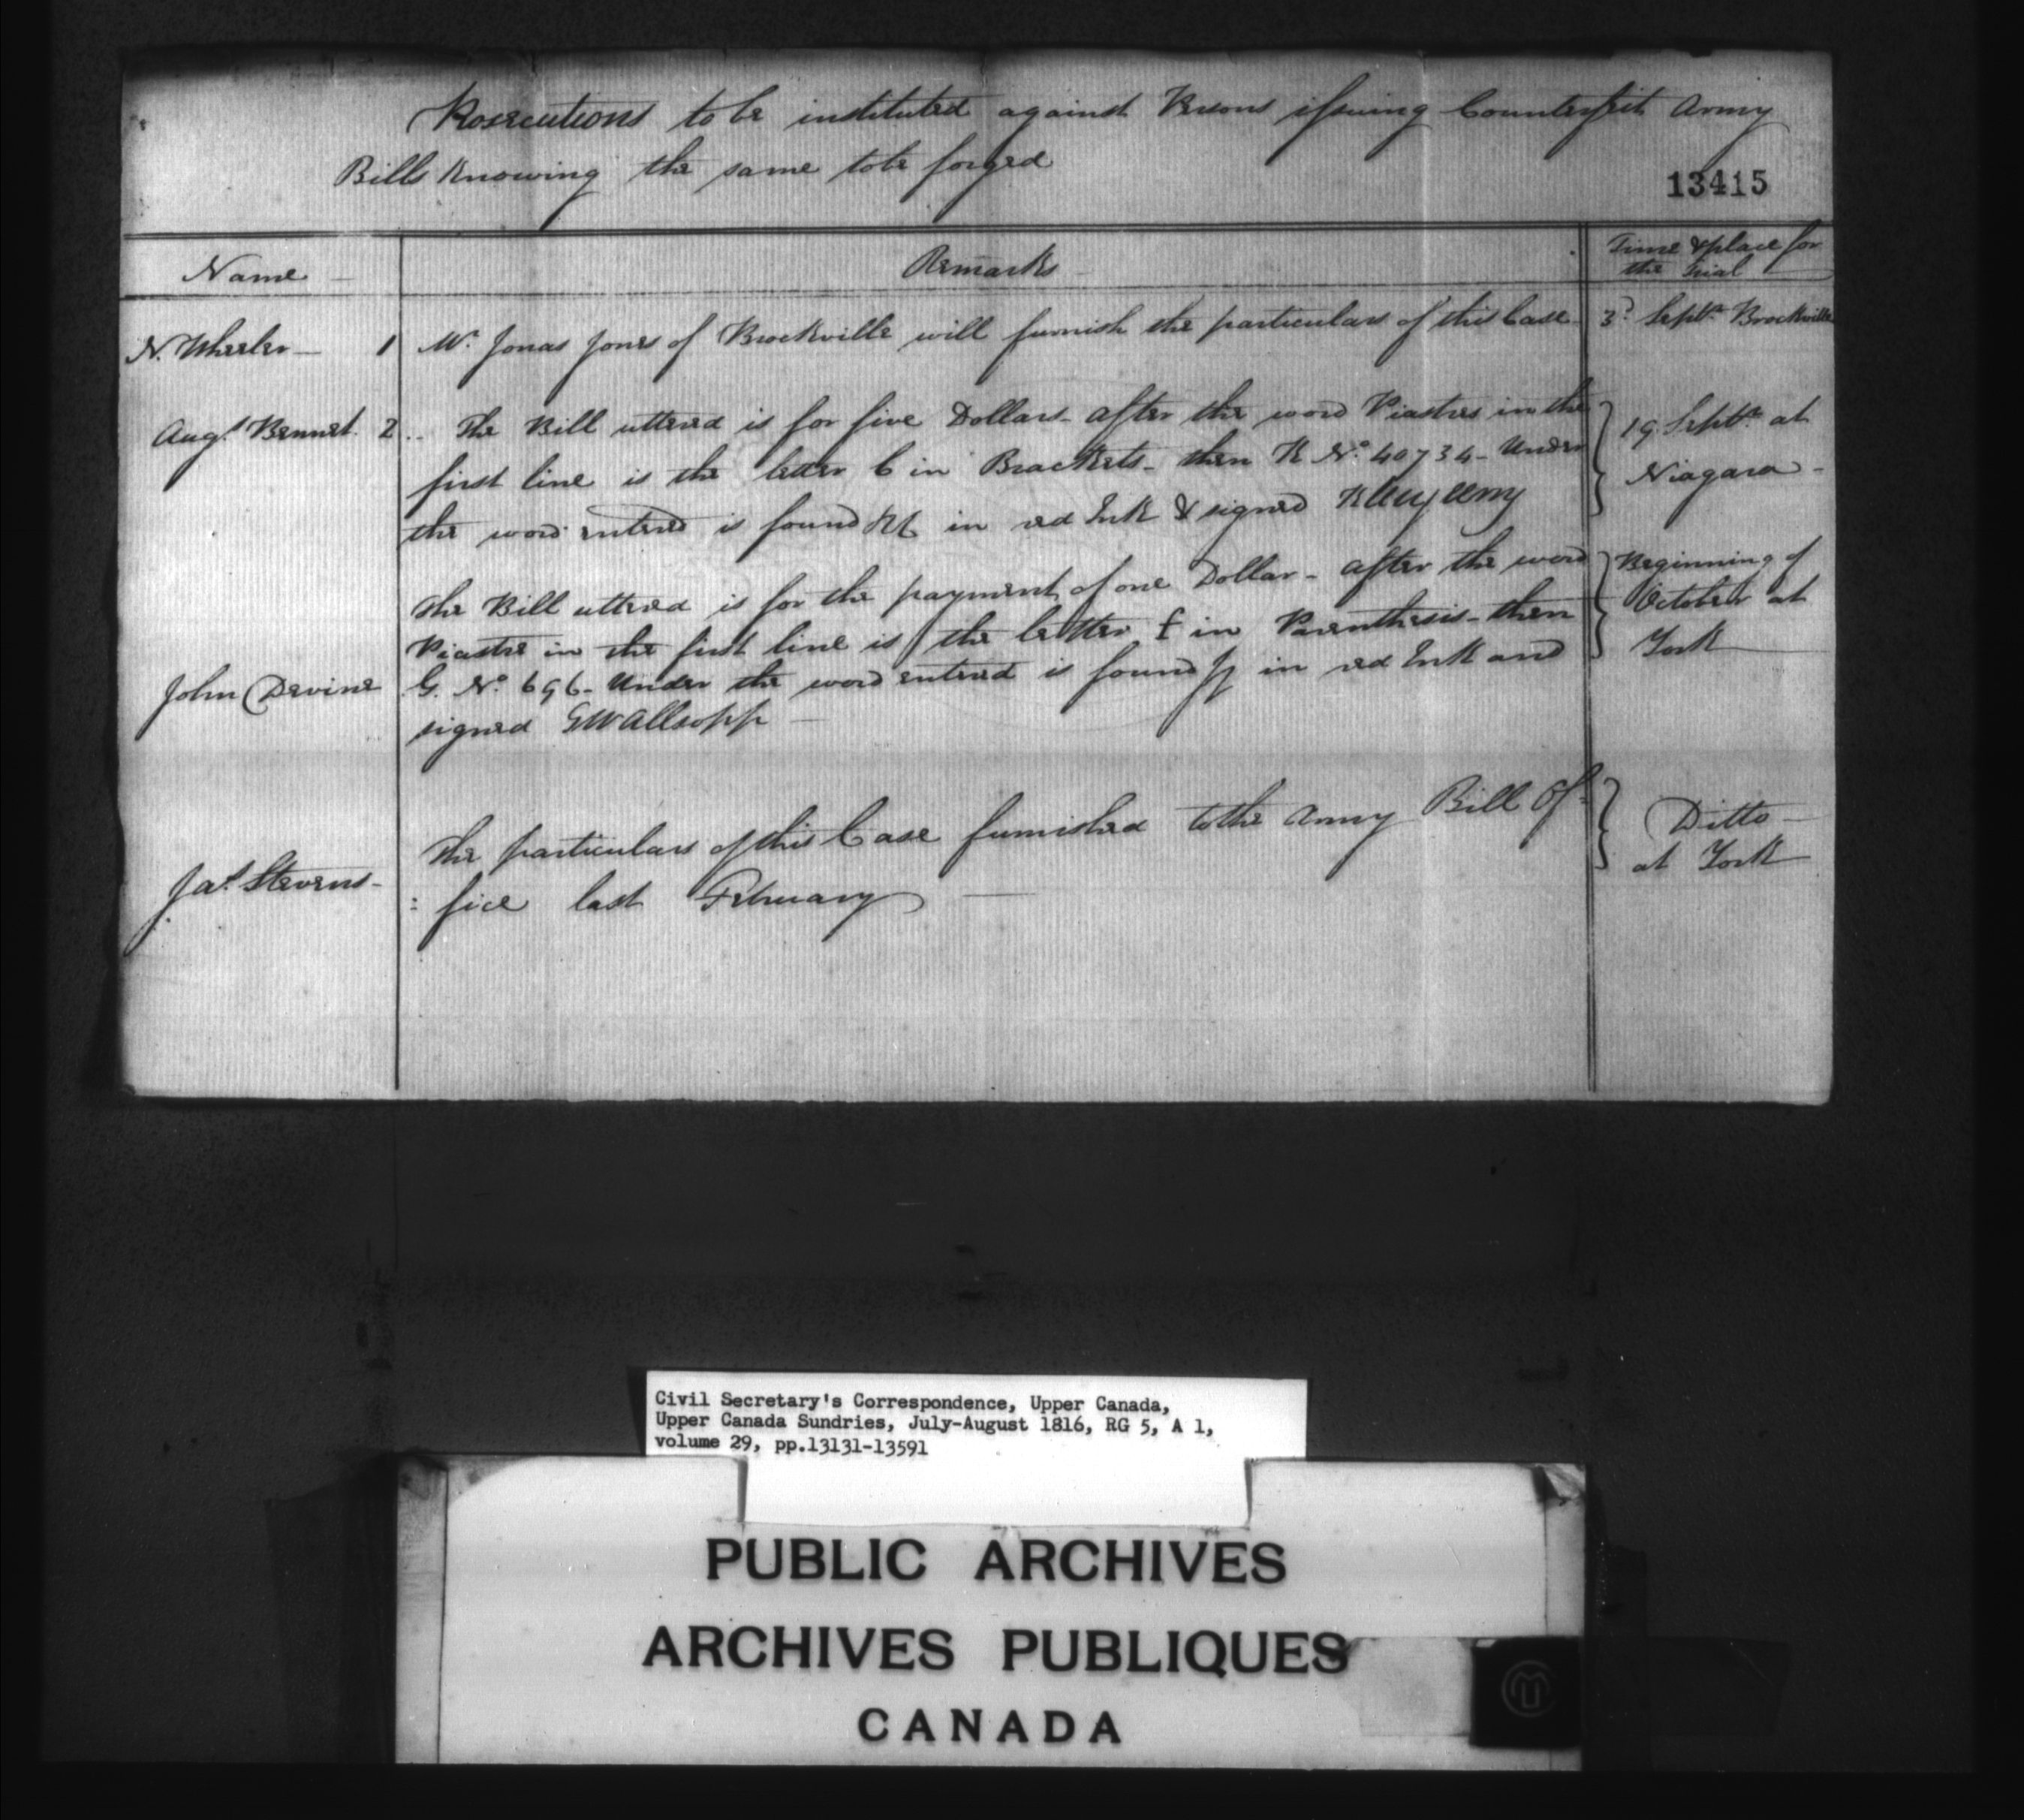 Prosecutions to be instituted against Persons issuing Counterfeit Army
Bills Knowing the same to be forged
13415
Name
Remarks
Time & place for
the Trial
N. Wheeler 1 Mr. Jonas Jones of Brockville will furnish the particulars of this Case 3d Septr. Brockville
Augs. Bennet. 2 .. The Bill uttered is for five Dollars - after the word Piastres in the
first line is the letter C in Brackets - then K No. 40734 - Under
the word entered is found in red Ink & signed
19 Septr. at
Niagara -
John Devine
The Bill uttered is for the payment of one Dollar - after the word
Piastre in the first line is the letter in Parenthesis - then
G. No. 696 - Under the word entered is found in red Ink and
signed GWAllsopp
Beginning of
October at
York
Jas. Stevens -
The particulars of this Case furnished to the Army Bill Of=
=fice last February
Ditto
at York
Civil Secretary's Correspondence, Upper Canada,
Upper Canada Sundries, July-August 1816, RG 5, A 1,
volume 29, pp.13131-13591
PUBLIC ARCHIVES
ARCHIVES PUBLIQUES
CANADA